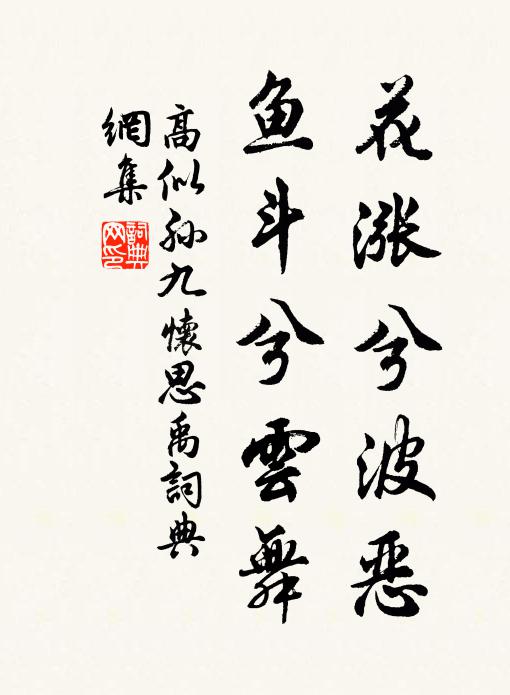 花涨兮波恶
鱼斗兮雲舞
高似孙九懷思禹詞典
網集
詞典网印